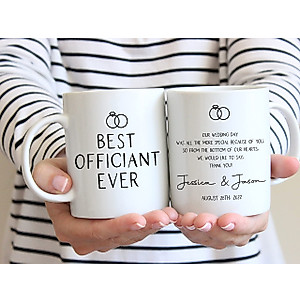 BEST
OFFICIANT
EVER
OUR WEDDING DAY
WAS ALL THE MORE SPECIAL BECAUSE OF YOU
SO FROM THE BOTTOM OF OUR HEARTS
WE WOULD LIKE TO SAY,
THANK YOU!
Jessica & Jason
AUGUST 20TH, 2022